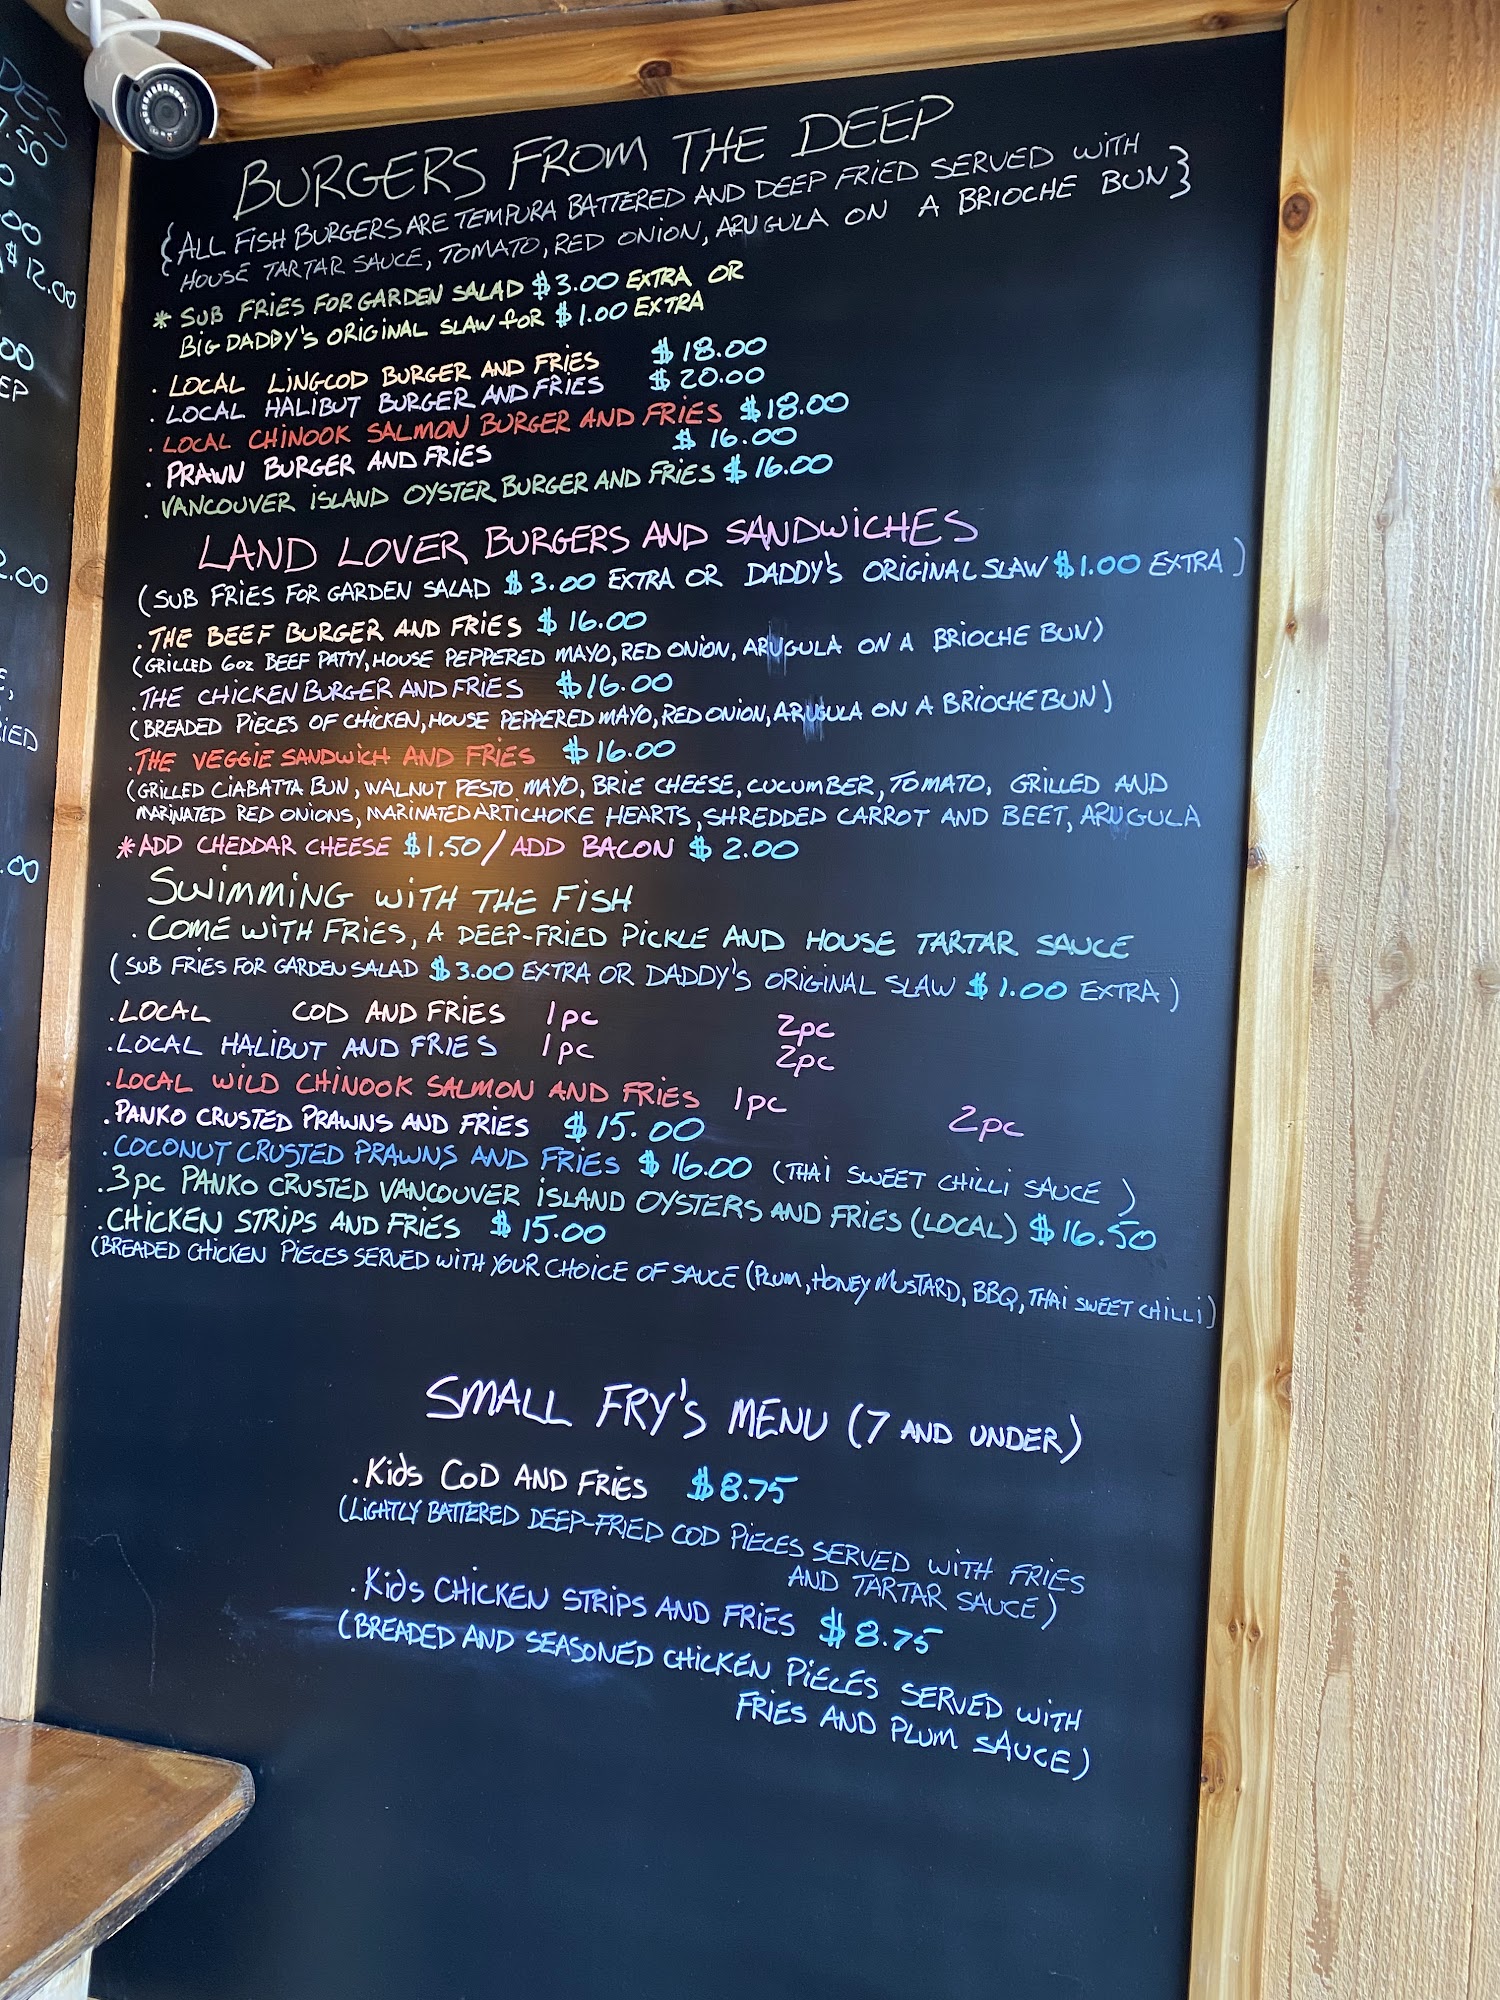 DES
7.50
.00
$12.00
.00
EP
2.00
IED
.00
BURGERS FROM THE DEEP
{ALL FISH BURGERS ARE TEMPURA BATTERED AND DEEP FRIED SERVED WITH
HOUSE TARTAR SAUCE, TOMATO, RED ONION, ARUGULA ON A BRIOCHE BUN}
* SUB FRIES FOR GARDEN SALAD $3.00 EXTRA OR
BIG DADDY'S ORIGINAL SLAW FOR $1.00 EXTRA
. LOCAL LINGCOD BURGER AND FRIES $18.00
. LOCAL HALIBUT BURGER AND FRIES $20.00
. LOCAL CHINOOK SALMON BURGER AND FRIES $18.00
. PRAWN BURGER AND FRIES $16.00
. VANCOUVER ISLAND OYSTER BURGER AND FRIES $16.00
LAND LOVER BURGERS AND SANDWICHES
(SUB FRIES FOR GARDEN SALAD $3.00 EXTRA OR DADDY'S ORIGINAL SLAW $1.00 EXTRA)
. THE BEEF BURGER AND FRIES $16.00
(GRILLED 6oz BEEF PATTY, HOUSE PEPPERED MAYO, RED ONION, ARUGULA ON A BRIOCHE BUN)
. THE CHICKEN BURGER AND FRIES $16.00
(BREADED PIECES OF CHICKEN, HOUSE PEPPERED MAYO, RED ONION, ARUGULA ON A BRIOCHE BUN)
. THE VEGGIE SANDWICH AND FRIES $16.00
(GRILLED CIABATTA BUN, WALNUT PESTO MAYO, BRIE CHEESE, CUCUMBER, TOMATO, GRILLED AND
MARINATED RED ONIONS, MARINATED ARTICHOKE HEARTS, SHREDDED CARROT AND BEET, ARUGULA
*ADD CHEDDAR CHEESE $1.50 / ADD BACON $2.00
SWIMMING WITH THE FISH
. COME WITH FRIES, A DEEP-FRIED PICKLE AND HOUSE TARTAR SAUCE
(SUB FRIES FOR GARDEN SALAD $3.00 EXTRA OR DADDY'S ORIGINAL SLAW $1.00 EXTRA)
. LOCAL COD AND FRIES 1pc 2pc
. LOCAL HALIBUT AND FRIES 1pc 2pc
. LOCAL WILD CHINOOK SALMON AND FRIES 1pc 2pc
. PANKO CRUSTED PRAWNS AND FRIES $15.00
. COCONUT CRUSTED PRAWNS AND FRIES $16.00 (THAI SWEET CHILLI SAUCE)
. 3pc PANKO CRUSTED VANCOUVER ISLAND OYSTERS AND FRIES (LOCAL) $16.50
. CHICKEN STRIPS AND FRIES $15.00
(BREADED CHICKEN PIECES SERVED WITH YOUR CHOICE OF SAUCE (PLUM, HONEY MUSTARD, BBQ, THAI SWEET CHILLI)
SMALL FRY'S MENU (7 AND UNDER)
. Kids COD AND FRIES $8.75
(LIGHTLY BATTERED DEEP-FRIED COD PIECES SERVED WITH FRIES
AND TARTAR SAUCE)
. Kids CHICKEN STRIPS AND FRIES $8.75
(BREADED AND SEASONED CHICKEN PIECES SERVED WITH
FRIES AND PLUM SAUCE)